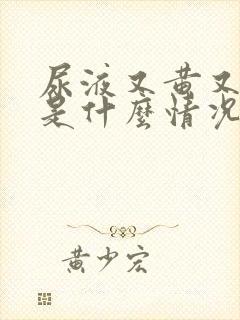 尿液又黄又
是什麼情况
黄少宏